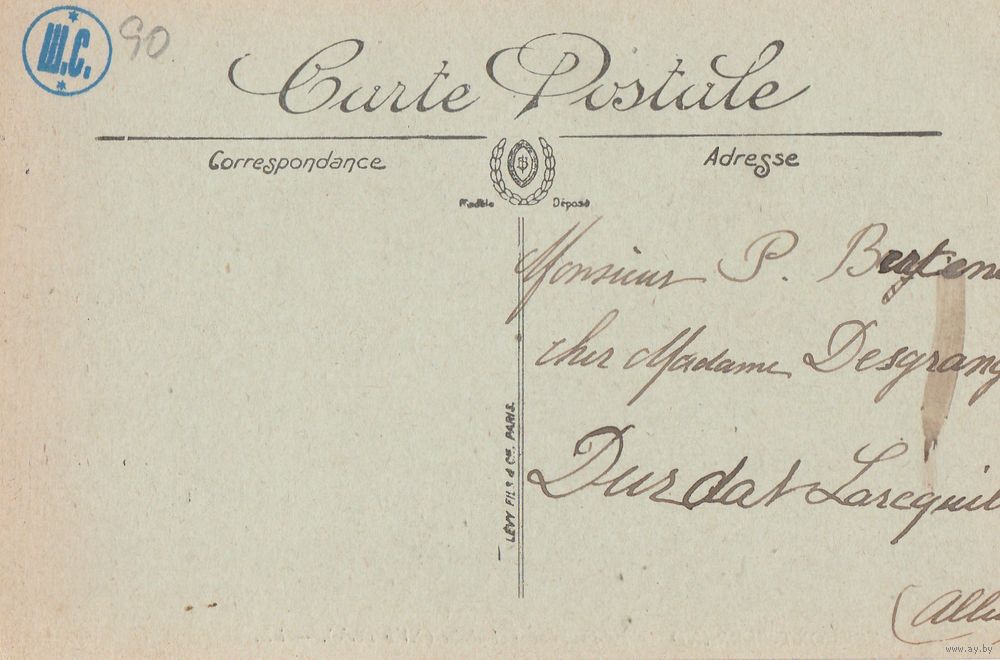 Ш.С.
90
Carte Postale
Correspondance
Adresse
Modèle Déposé
Monsieur P.
chez Madame Desgrang
Durdat Larequil
(Alli
LÉVY FILS & Cie, PARIS.
www.ay.by